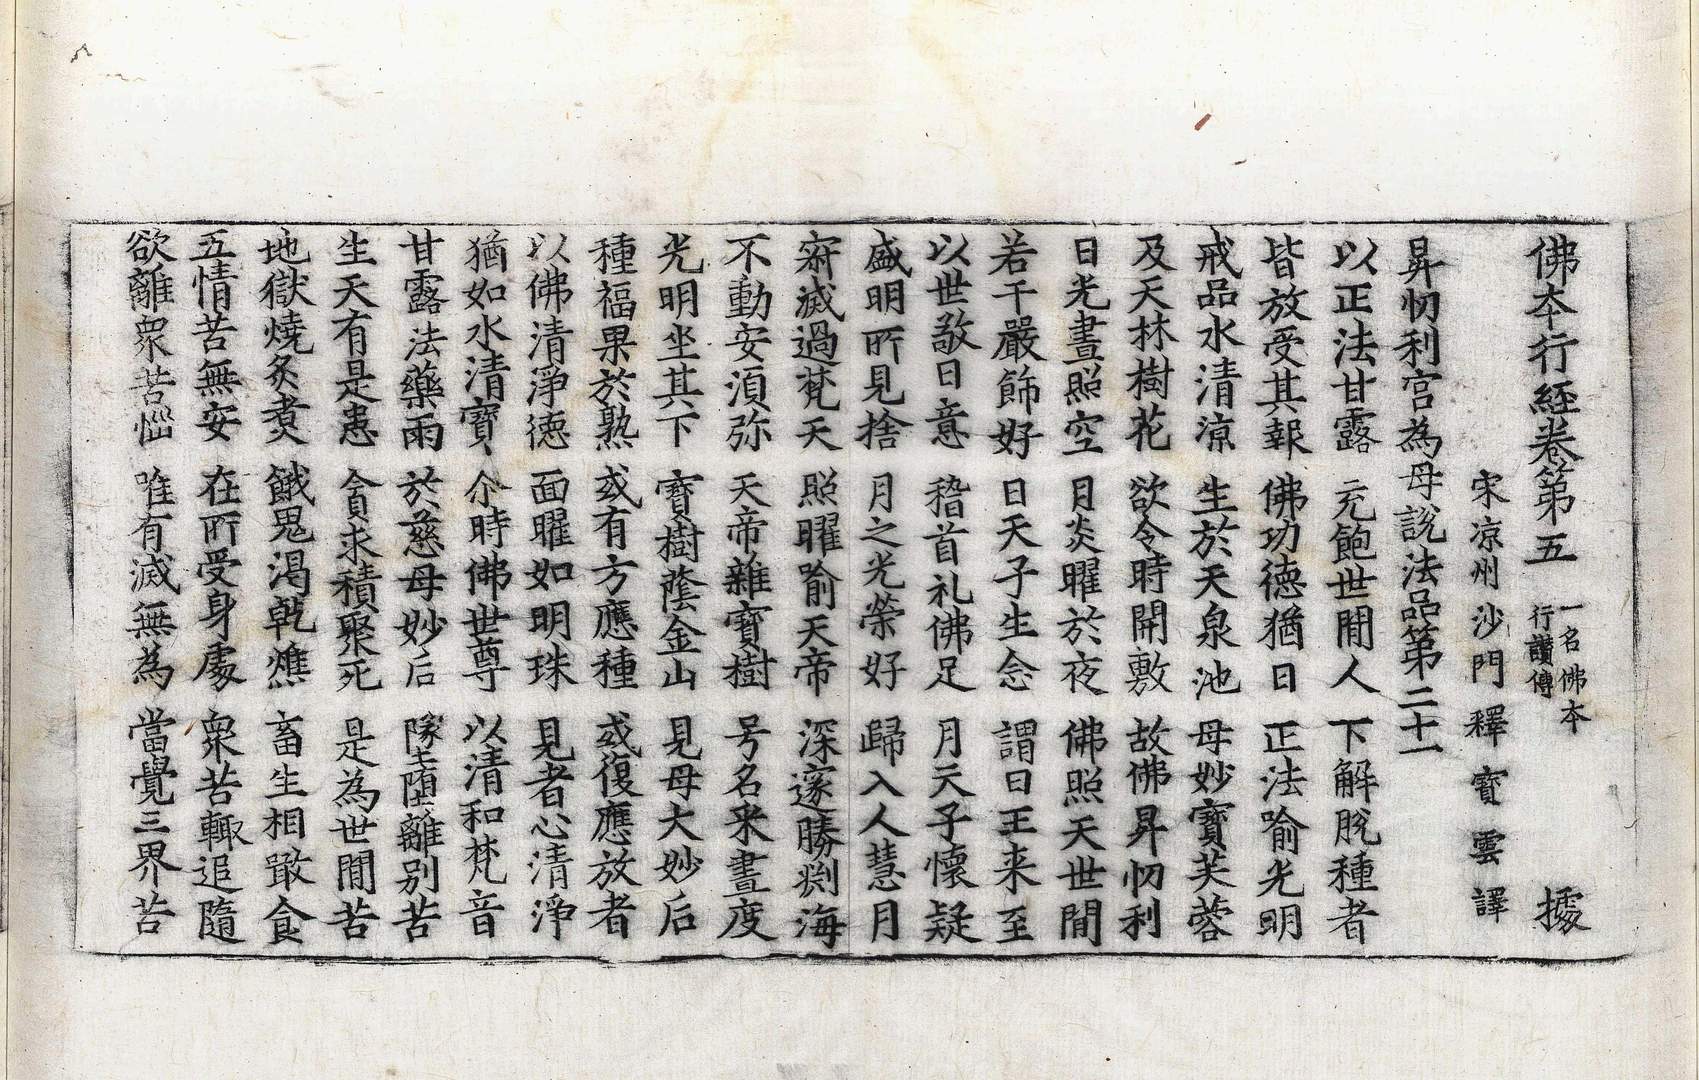 佛本行經卷第五 一名佛本行讃傳 據
宋涼州沙門釋寶雲譯
昇忉利宮為母說法品第二十一
以正法甘露 充飽世閒人 下解脫種者
皆放受其報 佛功德猶日 正法喻光明
戒品水清涼 生於天泉池 母妙寶芙蓉
及天林樹花 欲令時開敷 故佛昇忉利
日光晝照空 月炎曜於夜 佛照天世閒
若干嚴飾好 日天子生念 謂日王来至
以世敬日意 稽首礼佛足 月天子懷疑
盛明所見捨 月之光榮好 歸入人慧月
寂滅過梵天 照曜喻天帝 深邃勝淵海
不動安湏弥 天帝雜寶樹 号名来晝度
光明坐其下 寶樹蔭金山 見母大妙后
種福果於熟 或有方應種 或復應放者
以佛清淨德 面曜如明珠 見者心清淨
猶如水清寶 尒時佛世尊 以清和梵音
甘露法藥雨 於慈母妙后 墜墮離別苦
生天有是患 貪求積聚死 是為世閒苦
地獄燒炙煑 餓鬼渴乾燋 畜生相噉食
五情苦無安 在所受身處 衆苦輙追隨
欲離衆苦惱 唯有滅無為 當覺三界苦